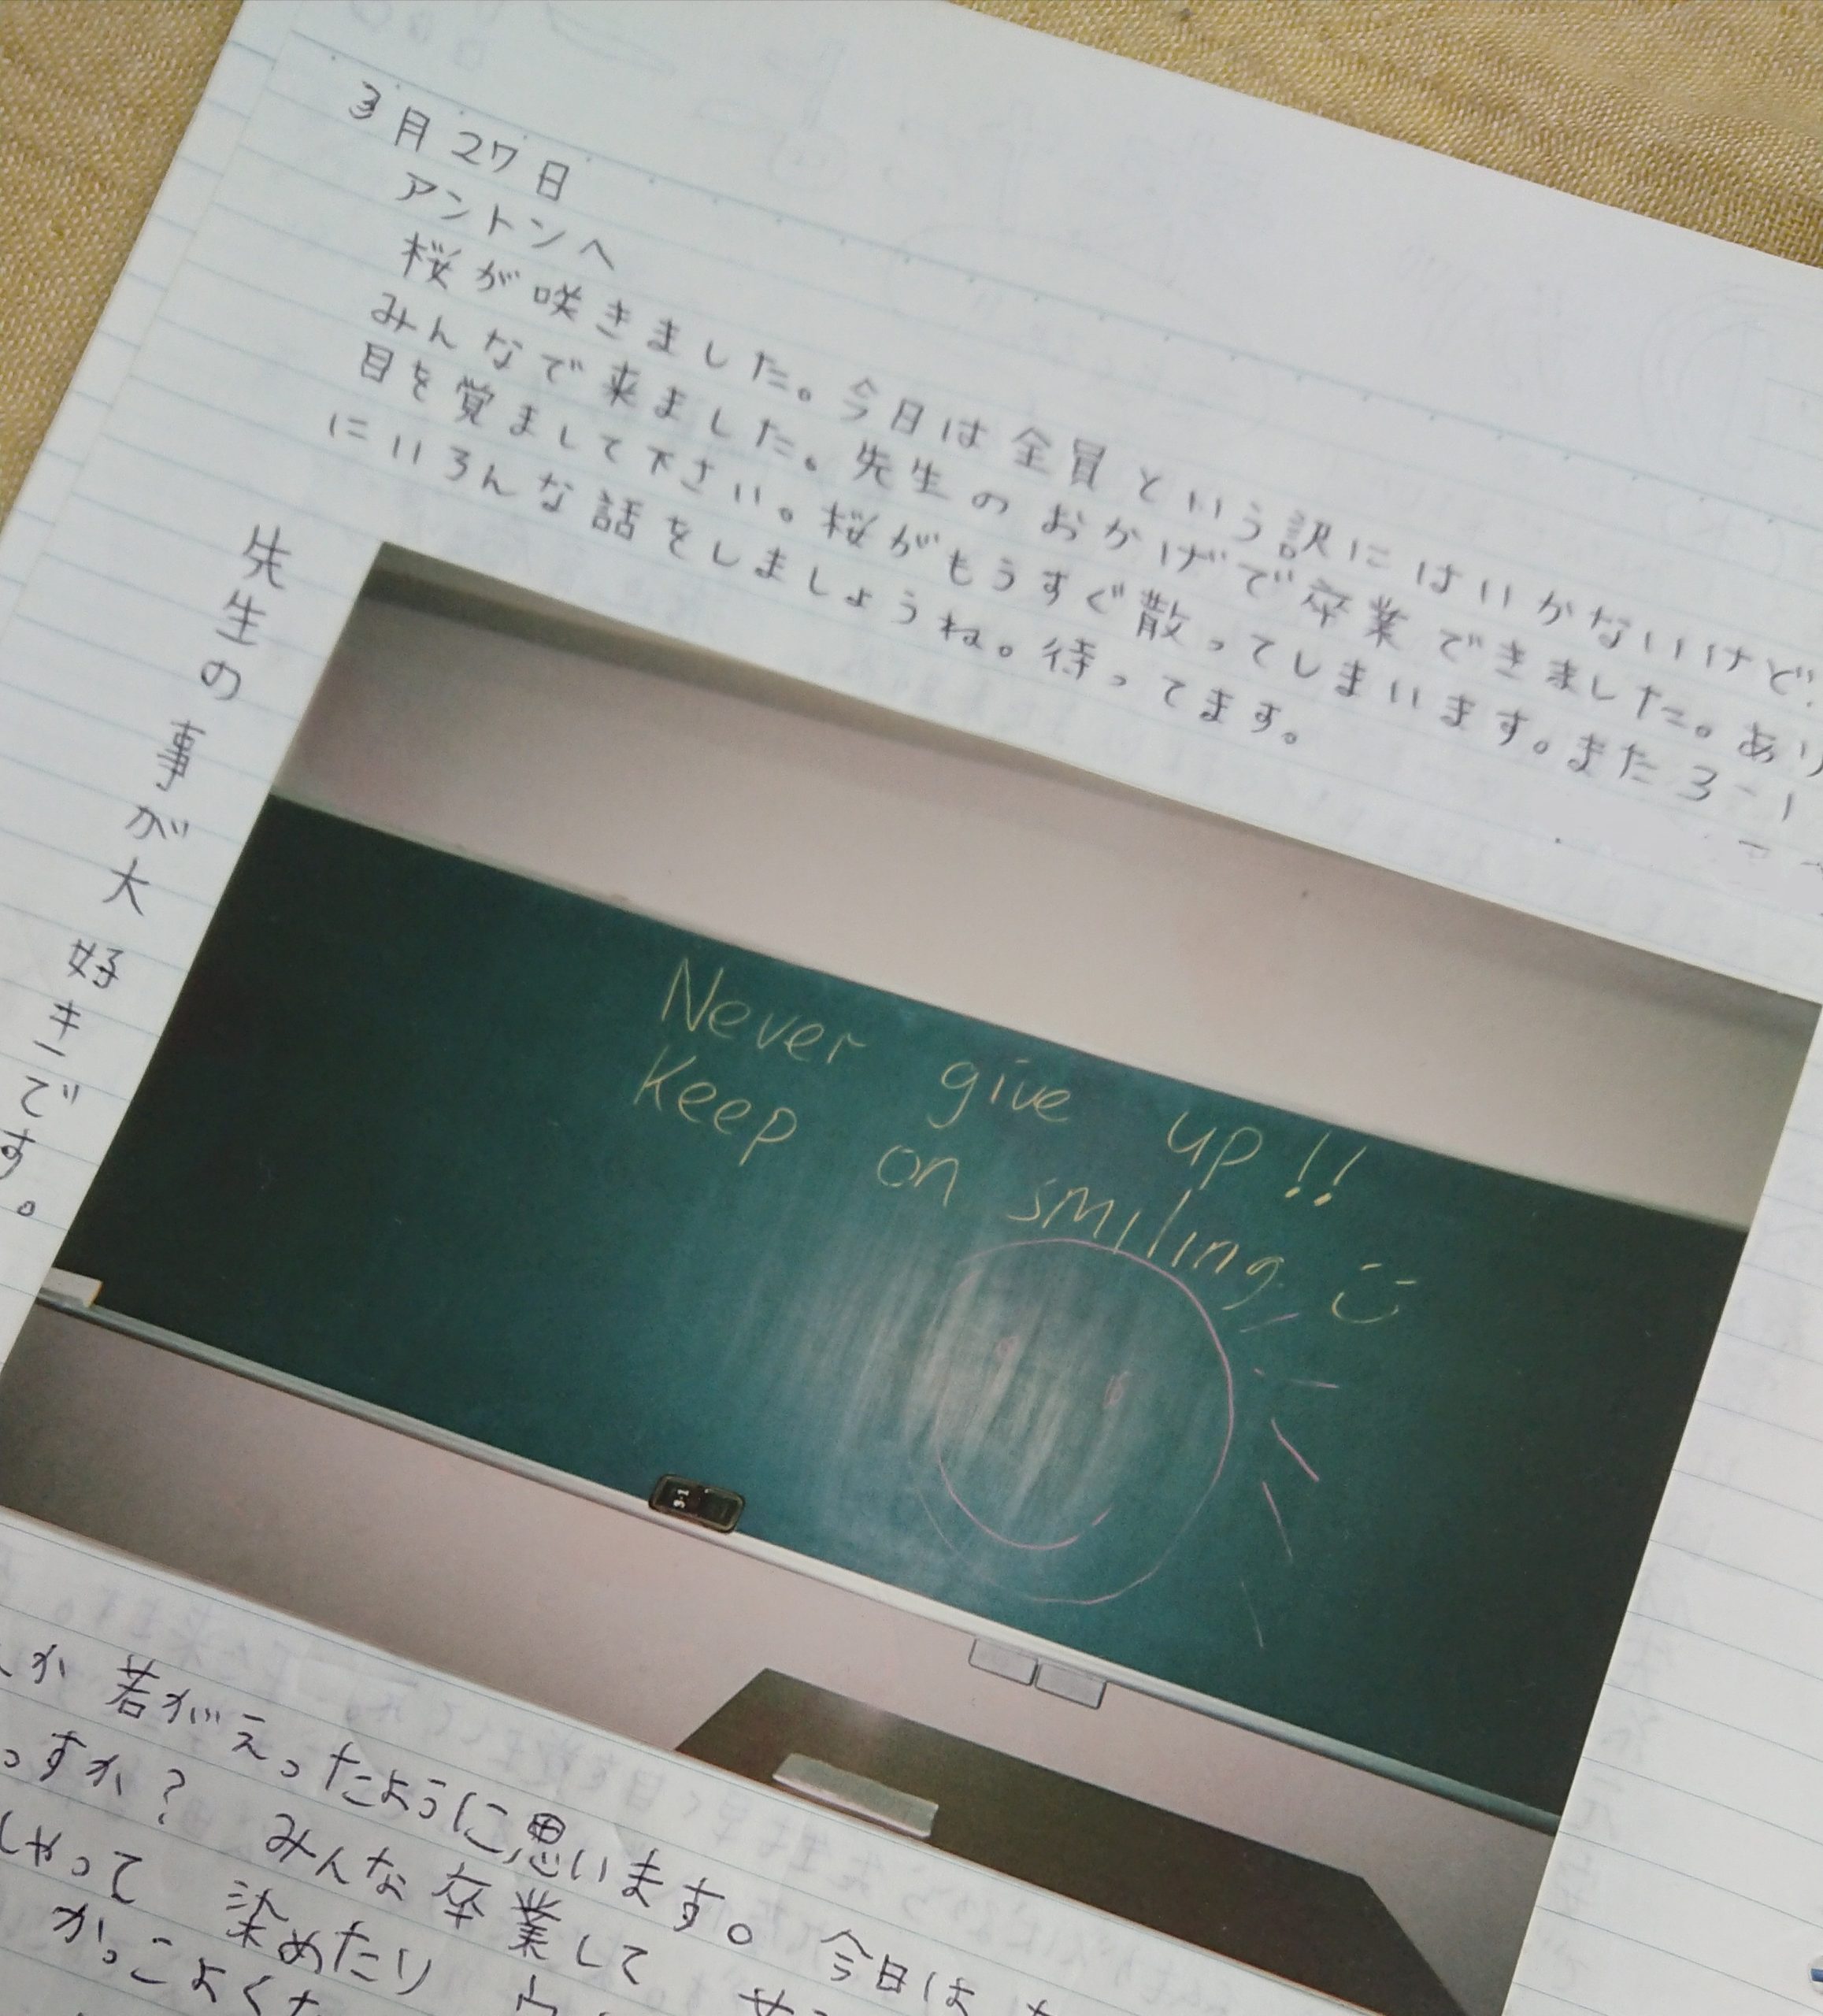 3月27日
アントンへ
桜が咲きました。今日は全員という訳にはいかないけど、
みんなで来ました。先生のおかげで卒業できました。あり
目を覚まして下さい。桜がもうすぐ散ってしまいます。また3-1
にいろんな話をしましょうね。待ってます。
先生の事が大好きです。
Never give up!!
Keep on smiling
3-1
か若がえったように思います。今日は
っすか? みんな卒業して
しゃって 染めたり
かっこよくな